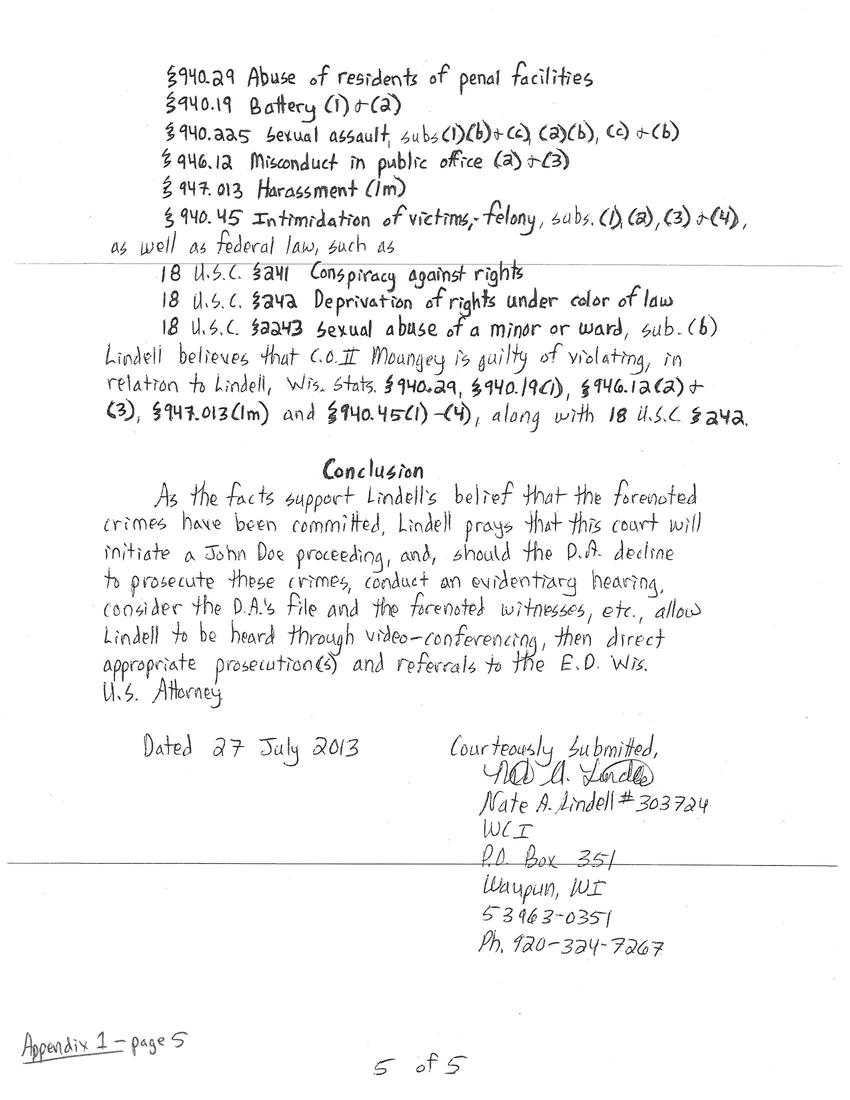 §940.29 Abuse of residents of penal facilities
§940.19 Battery (1)+(2)
§940.225 Sexual assault, subs(1)(b)+(c), (2)(b), (c) + (h)
§946.12 Misconduct in public office (2)+(3)
§947.013 Harassment (1m)
§940.45 Intimidation of victims,- felony, subs. (1), (2), (3) + (4),
as well as federal law, such as
18 U.S.C. §241 Conspiracy against rights
18 U.S.C. §242 Deprivation of rights under color of law
18 U.S.C. §2243 Sexual abuse of a minor or ward, sub. (b)
Lindell believes that C.O.II Moungey is guilty of violating, in
relation to Lindell, Wis. Stats. §940.29, §940.19(1), §946.12(2)+
(3), §947.013(1m) and §940.45(1)-(4), along with 18 U.S.C §242.
Conclusion
As the facts support Lindell's belief that the forenoted
crimes have been committed, Lindell prays that this court will
initiate a John Doe proceeding, and, should the D.A. decline
to prosecute these crimes, conduct an evidentiary hearing,
consider the D.A.'s file and the forenoted witnesses, etc., allow
Lindell to be heard through video-conferencing, then direct
appropriate prosecution(s) and referrals to the E.D. Wis.
U.S. Attorney
Dated 27 July 2013
Courteously Submitted,
Nate A. Lindell
Nate A. Lindell #303724
WCI
P.O. Box 351
Waupun, WI
53963-0351
Ph. 920-324-7267
Appendix 1 - page 5
5 of 5